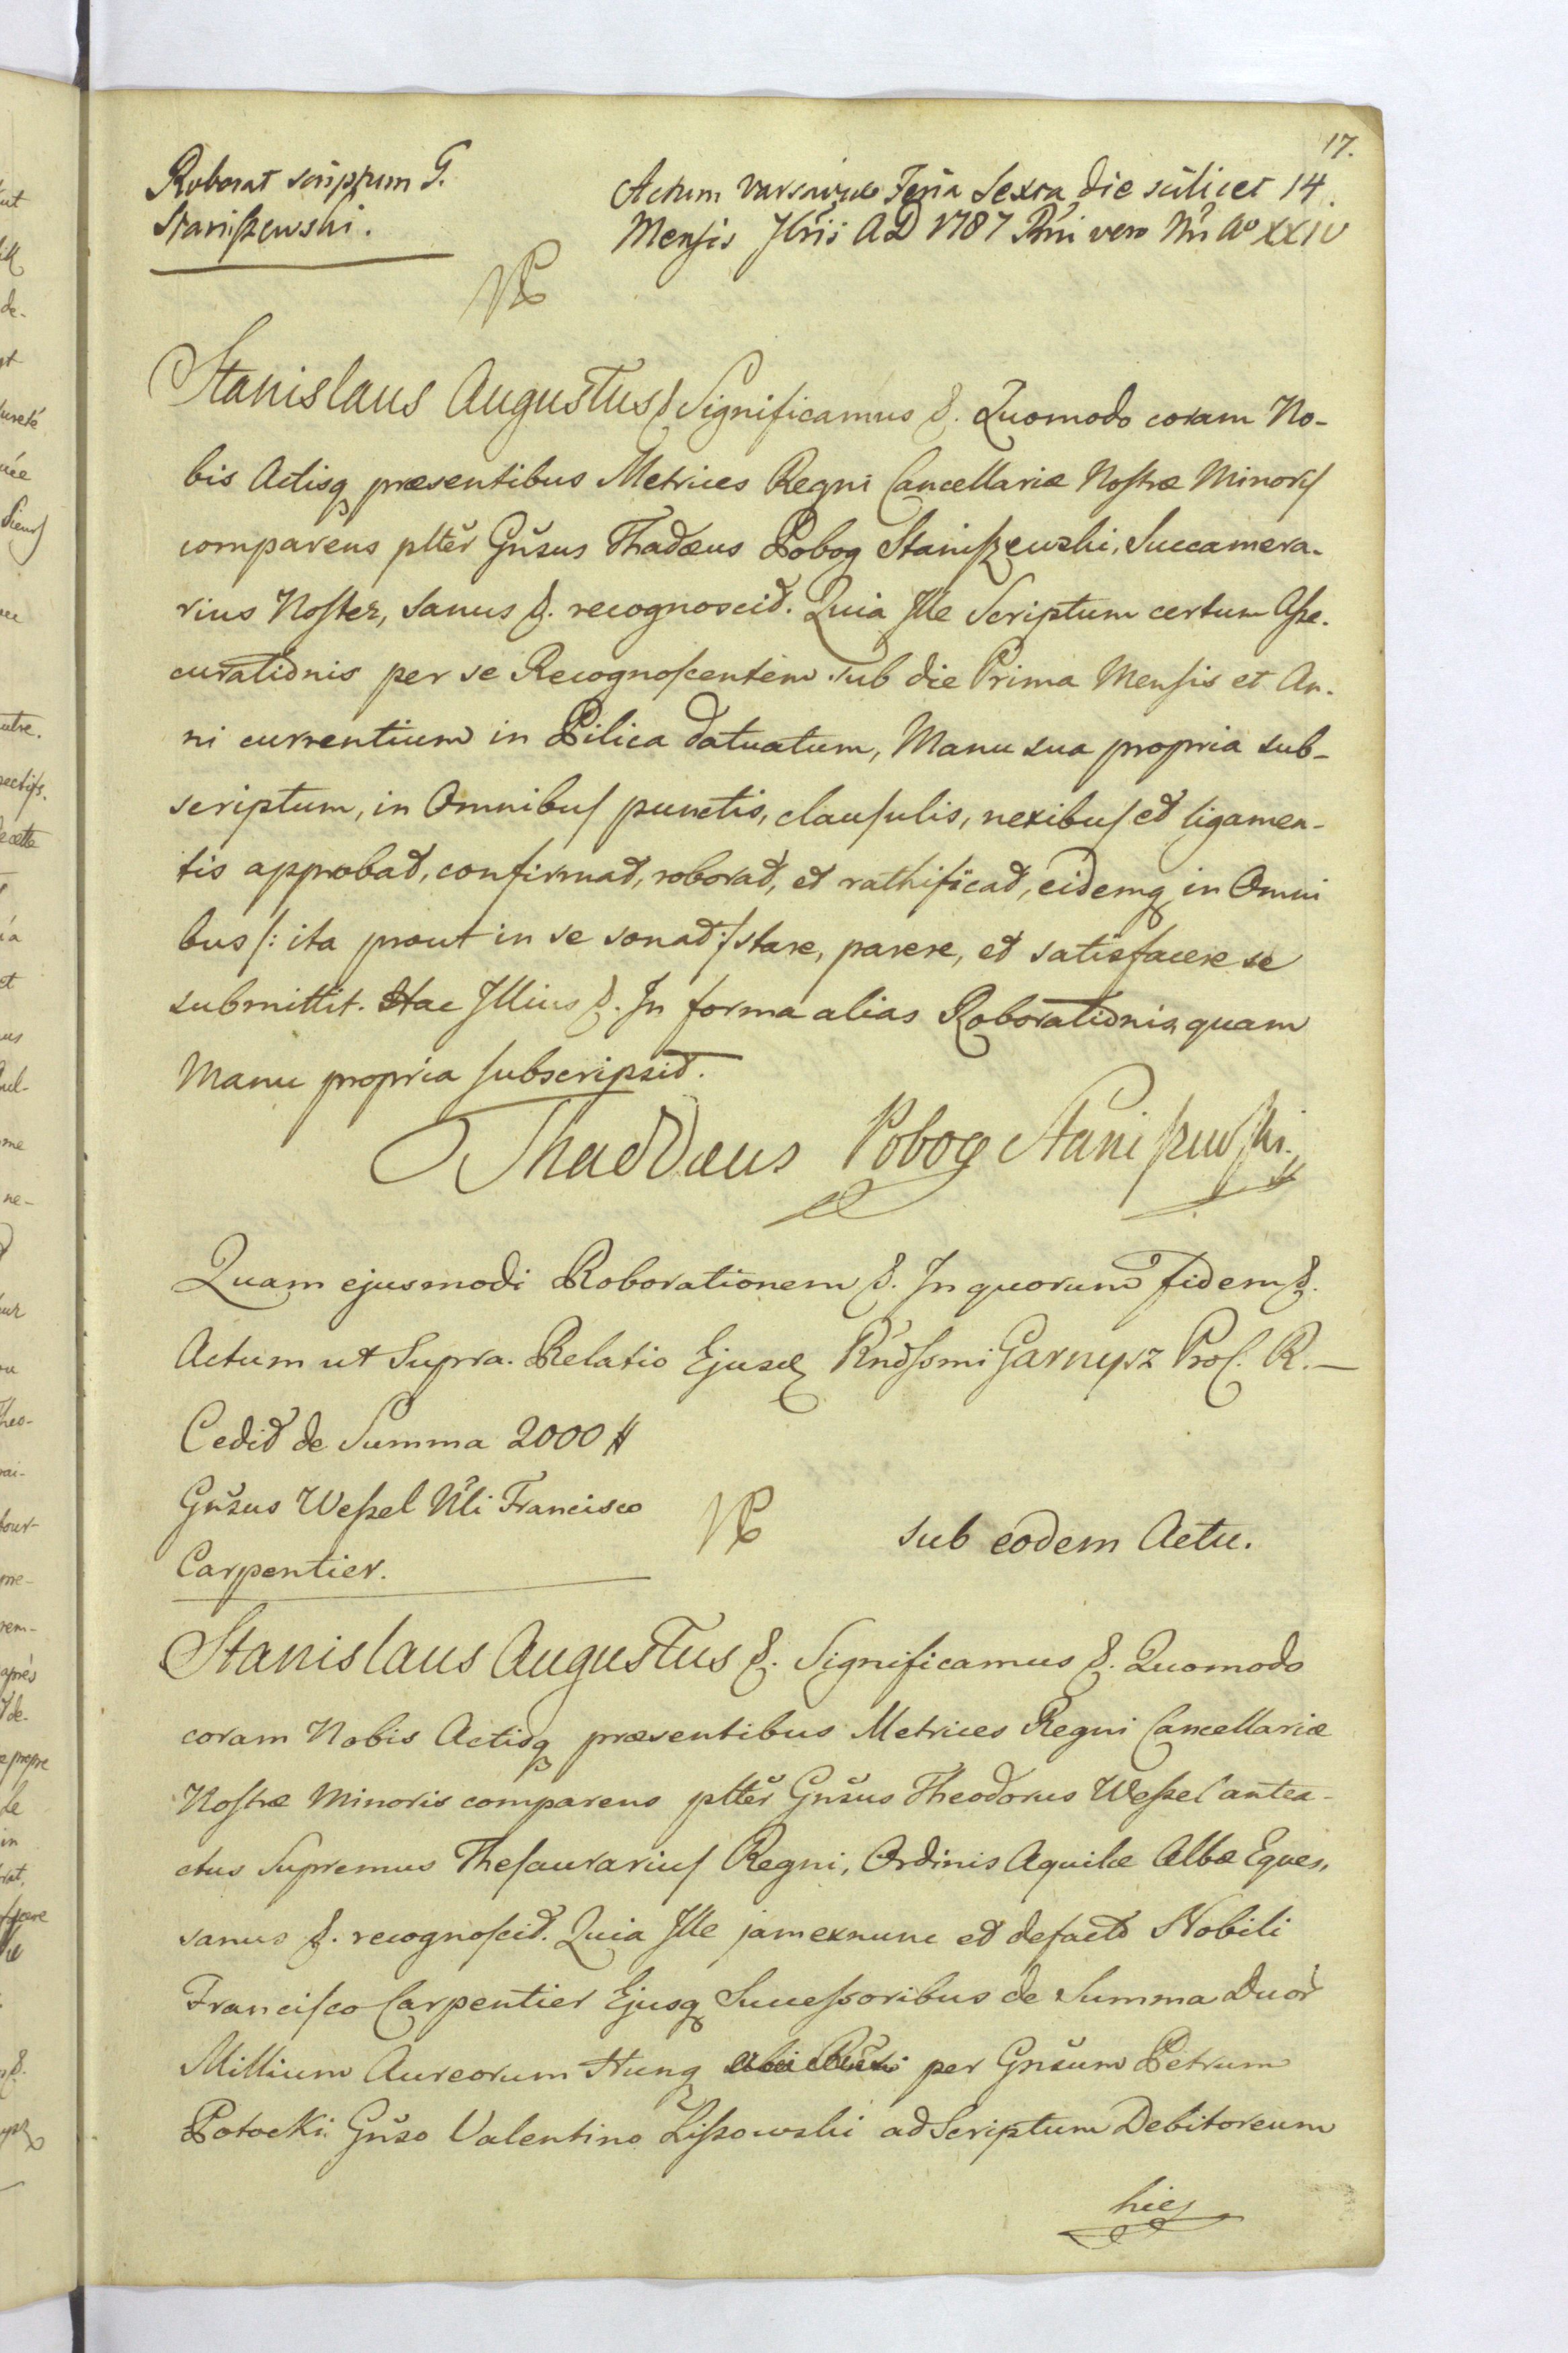 17.
Roborat scriptum G.
Staniszewski.
Actum Varsaviæ Feria Sexta die scilicet 14.
Mensis 7bris AD 1787 Rni vero Nri Aº XXIV
Stanislaus Augustus &. Significamus &. Quomodo coram No-
bis Actisq præsentibus Metrices Regni Cancellariæ Nostræ Minoris
comparens plter Gnsus Thadæus Pobog Staniszewski, Succamera-
rius Noster, sanus &. recognoscit. Quia Ille Scriptum certum Asse-
curationis per se Recognoscentem sub die Prima Mensis et An-
ni currentium in Pilica datuatum, Manu sua propria sub-
scriptum, in Omnibus punctis, clausulis, nexibus et ligamen-
tis approbat, confirmat, roborat, et rathificat, eidemq in Omni
bus /: ita prout in se sonat :/ stare, parere, et satisfacere se
submittit. Hac Illius &. In forma alias Roborationis, quam
Manu propria subscripsit.
Thaddæus Pobog Staniszewski.
Quam ejusmodi Roborationem &. In quorum fidem &.
Actum ut Supra. Relatio Ejusd Rndssmi Garnysz Pro C. R. —
Cedit de Summa 2000 #
Gnsus Wessel Nli Francisco
Carpentier.
sub eodem Actu.
Stanislaus Augustus &. Significamus &. Quomodo
coram Nobis Actisq præsentibus Metrices Regni Cancellariæ
Nostræ Minoris comparens plter Gnsus Theodorus Wessel antea-
ctus Supremus Thesaurarius Regni, Ordinis Aquilæ Albæ Eques,
sanus &. recognoscit. Quia Ille jam exnunc et defacto Nobili
Francisco Carpentier Ejusq Successoribus de Summa Duor
Millium Aureorum Hung per Gnsum Petrum
Potocki Gnso Valentino Lissowski ad Scriptum Debitoreum
hic